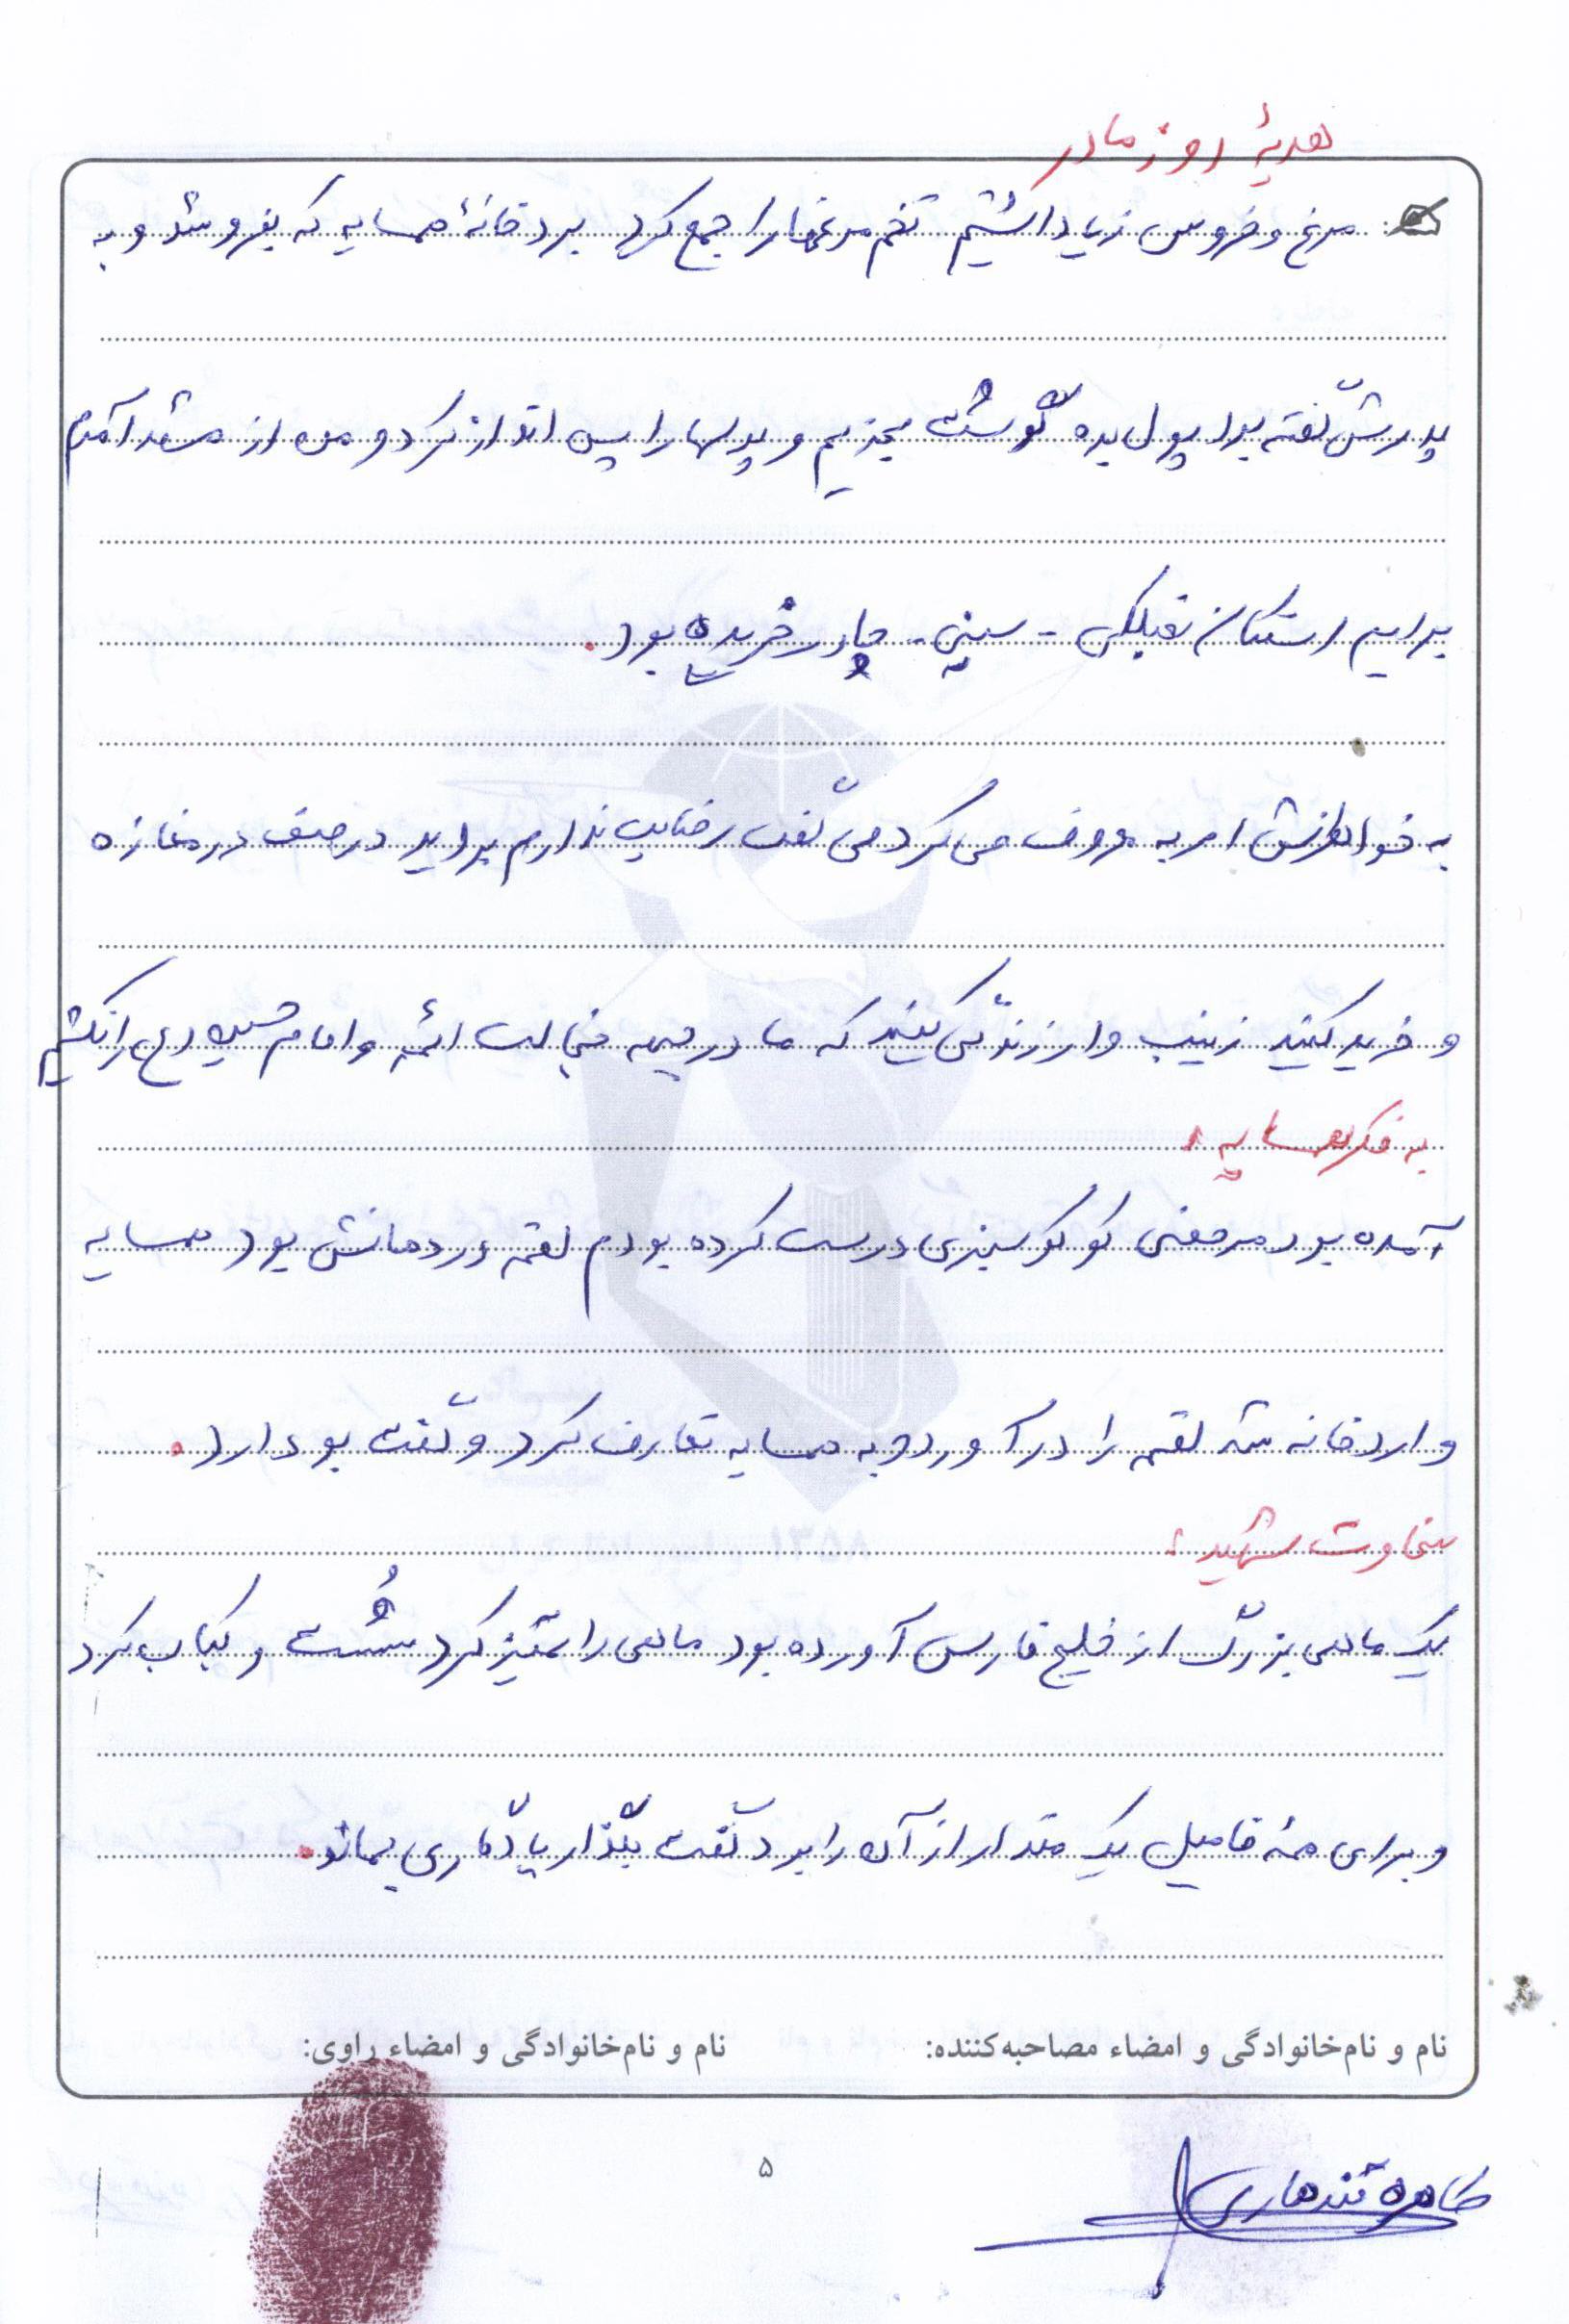 هدیهٔ روز مادر
مرغ و خروس زیاد داشتیم تخم مرغها را جمع کرد برد خانهٔ همسایه که بفروشد و به
پدرش گفته بود پول بده گوشت بخریم و پولها را پس انداز کرد و من از مشهد آمدم
برایم استکان نعلبکی - سینی - چادر خریده بود.
به خواهرانش امر به معروف می کرد می گفت رضایت ندارم بروید در صف در مغازه
و خرید کنید زینب وار زندگی کنید که ما در جبهه خجالت ائمه و امام حسین (ع) را نکشیم
به فکر همسایه:
آمده بود مرخصی کوکو سبزی درست کرده بودم لقمه در دهانش بود همسایه
وارد خانه شد لقمه را در آورد و به همسایه تعارف کرد و گفت بو دارد.
سخاوت شهید:
یک ماهی بزرگ از خلیج فارس آورده بود ماهی را تمیز کرد شُست و کباب کرد
و برای همهٔ فامیل یک مقدار از آن را برد گفت بگذار یادگاری بماند.
نام و نام‌خانوادگی و امضاء مصاحبه‌کننده: نام و نام‌خانوادگی و امضاء راوی:
طاهره قندهاری
۵